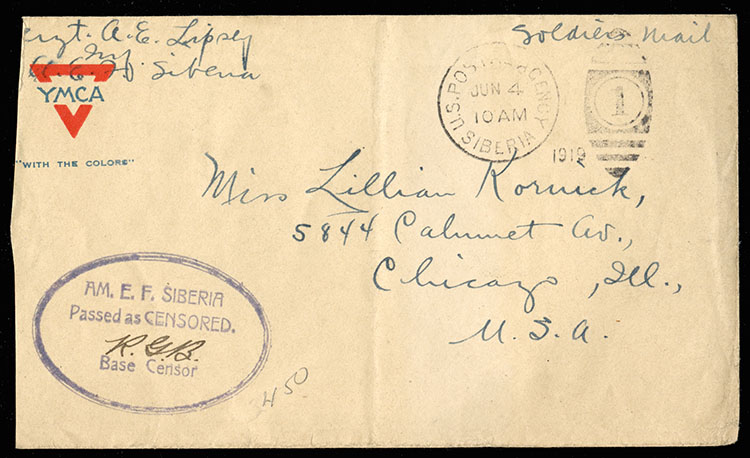 A. E. Lipsey
Siberia
YMCA
"WITH THE COLORS"
Soldiers Mail
U.S. POSTAL AGENCY
JUN 4
10 AM
SIBERIA
1919
1
Miss Lillian Kornick,
5844 Calumet Av.,
Chicago, Ill.,
U. S. A.
AM. E. F. SIBERIA
Passed as CENSORED.
R.G.B.
Base Censor
450